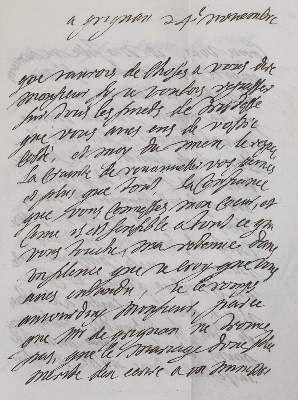 a grignan 24e novembre
que j'aurois de choses a vous dire
monsieur si je voulois repasser
sur tous les sujets de tristesse
que vous aves eus de vostre
costé, et moy du mien
la crainte de renouveller vos peines
et plus que tout la confiance
que vous connoisses mon coeur, et
est sensible a tout ce qui
vous touche, ma retenue dans
silence que je croy que vous
aves entendu, je le romps
aujourdhuy monsieur, parce
que mr de grignan ne trouve
pas, que le mariage d'une fille
merite d'en ecrire a un ministre